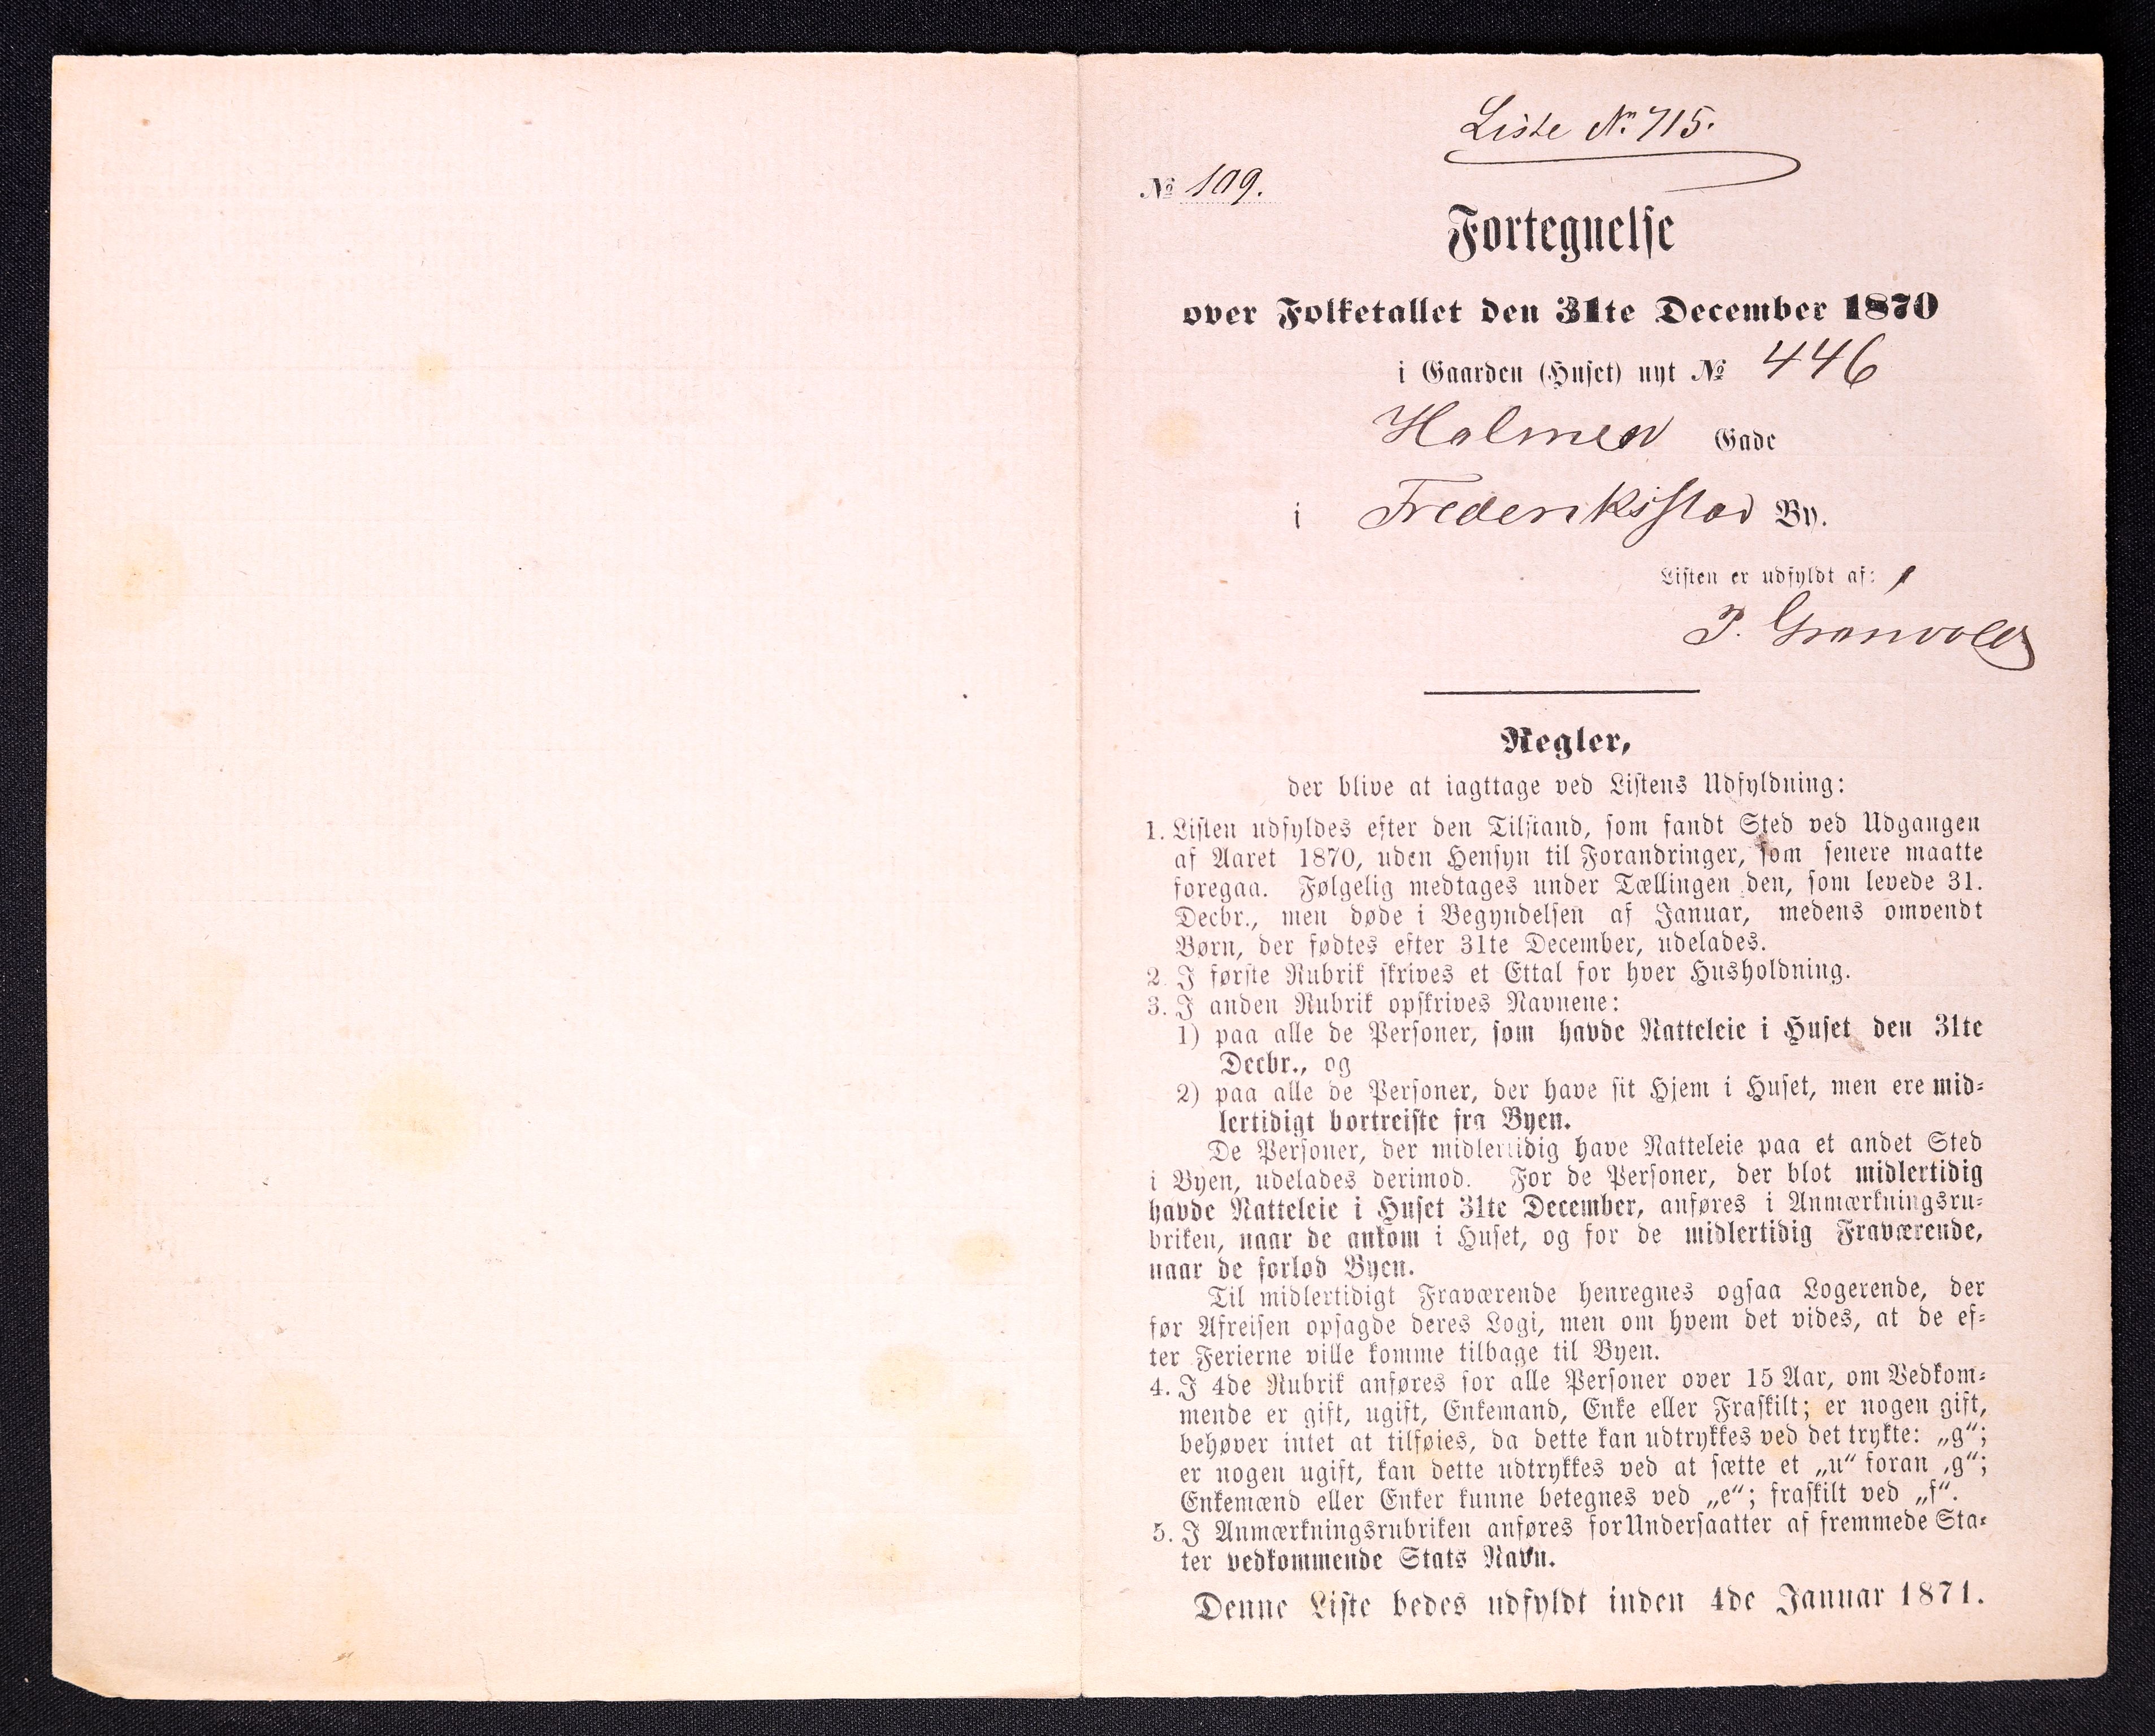 Liste No. 715.
No 109.
Fortegnelse
over Folketallet den 31te December 1870
i Gaarden (Huset) nyt No 446
Holmen Gade
i Frederiksstad By.
Listen er udfyldt af:
P. Grønvold
Regler,
der blive at iagttage ved Listens Udfyldning:
1. Listen udfyldes efter den Tilstand, som fandt Sted ved Udgangen
af Aaret 1870, uden Hensyn til Forandringer, som senere maatte
foregaa. Følgelig medtages under Tællingen den, som levede 31.
Decbr., men døde i Begyndelsen af Januar, medens omvendt
Børn, der fødtes efter 31te December, udelades.
2. I første Rubrik skrives et Ettal for hver Husholdning.
3. I anden Rubrik opskrives Navnene:
1) paa alle de Personer, som havde Natteleie i Huset den 31te
Decbr., og
2) paa alle de Personer, der have sit Hjem i Huset, men ere mid-
lertidigt bortreiste fra Byen.
De Personer, der midlertidig have Natteleie paa et andet Sted
i Byen, udelades derimod. For de Personer, der blot midlertidig
havde Natteleie i Huset 31te December, anføres i Anmærkningsru-
briken, naar de ankom i Huset, og for de midlertidig Fraværende,
naar de forlod Byen.
Til midlertidigt Fraværende henregnes ogsaa Logerende, der
før Afreisen opsagde deres Logi, men om hvem det vides, at de ef-
ter Ferierne ville komme tilbage til Byen.
4. I 4de Rubrik anføres for alle Personer over 15 Aar, om Vedkom-
mende er gift, ugift, Enkemand, Enke eller Fraskilt; er nogen gift,
behøver intet at tilføies, da dette kan udtrykkes ved det trykte: „g“;
er nogen ugift, kan dette udtrykkes ved at sætte et „u“ foran ,g“;
Enkemænd eller Enker kunne betegnes ved „e“; fraskilt ved „f“.
5. I Anmærkningsrubriken anføres for Undersaatter af fremmede Sta-
ter vedkommende Stats Navn.
Denne Liste bedes udfyldt inden 4de Januar 1871.